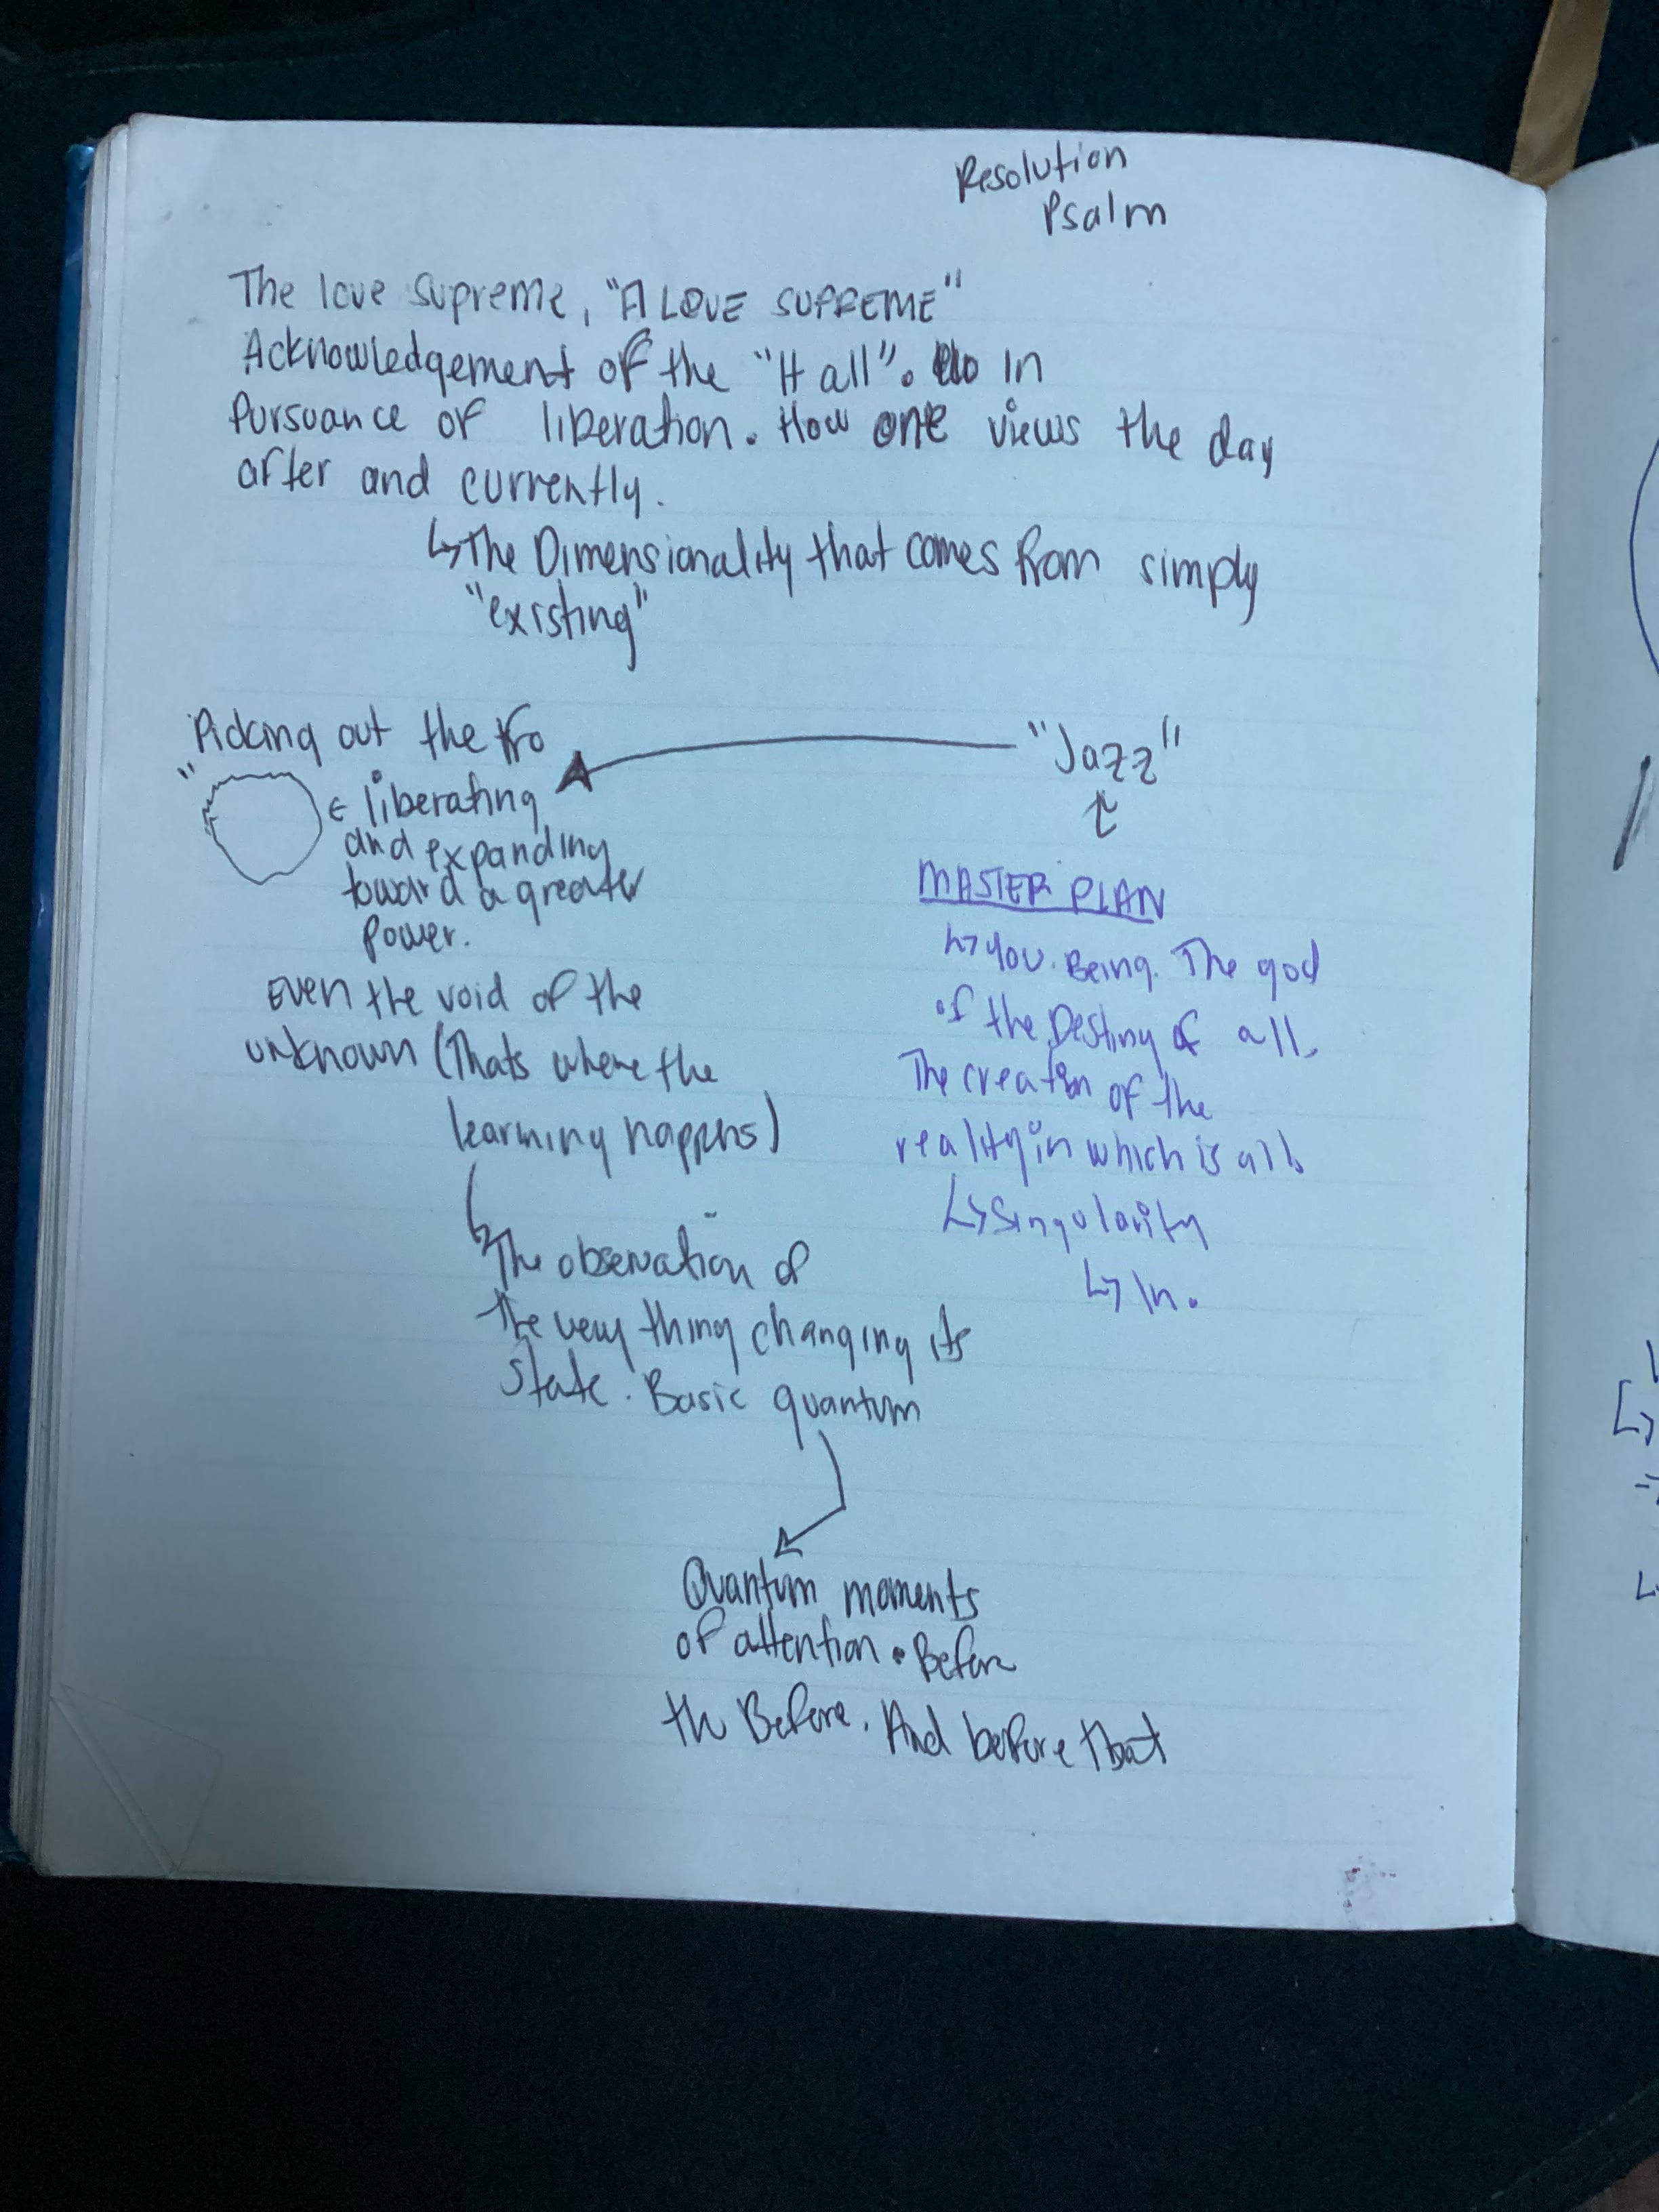 Resolution
Psalm
The love supreme, "A LOVE SUPREME"
Acknowledgement of the "It all". In
Pursuance of liberation. How one views the day
after and currently.
↳ The Dimensionality that comes from simply
"existing"
"Picking out the fro
"
← liberating
and expanding
toward a greater
power.
Even the void of the
unknown (Thats where the
learning happens)
↳ The observation of
the very thing changing its
state. Basic quantum
Quantum moments
of attention. Before
the Before. And before that
"Jazz"
MASTER PLAN
↳ You. Being. The god
of the Destiny of all.
The creation of the
reality in which is all.
↳ Singularity
↳ In.